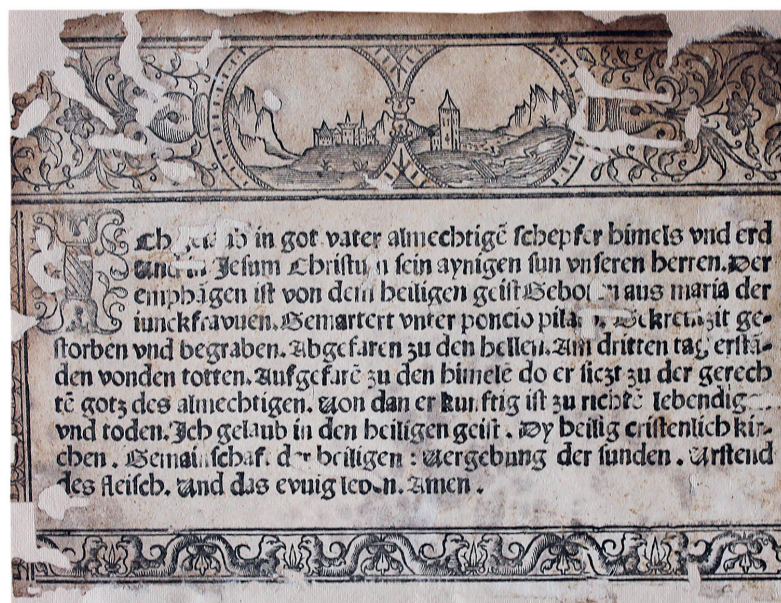 Ich gelaub in got vater almechtigē schepfer himels vnd erd
Vnd in Jesum Christum sein aynigen sun vnseren herren. Der
emphāgen ist von dem heiligen geist Geborn aus maria der
iunckfrauuen. Gemartert vnter poncio pila Gekretzit ge-
storben vnd begraben. Abgefaren zu den hellen. Am dritten tag erstā-
den vonden totten. Aufgefarē zu den himelē do er siczt zu der gerech
tē gotz des almechtigen. Von dan er kunftig ist zu richtē lebendig
vnd toden. Ich gelaub in den heiligen geist. Dy heilig cristenlich kir-
chen. Gemainschaft der heiligen : Vergebung der sunden. Urstend
des fleisch. Vnd das evuig leven. Amen.